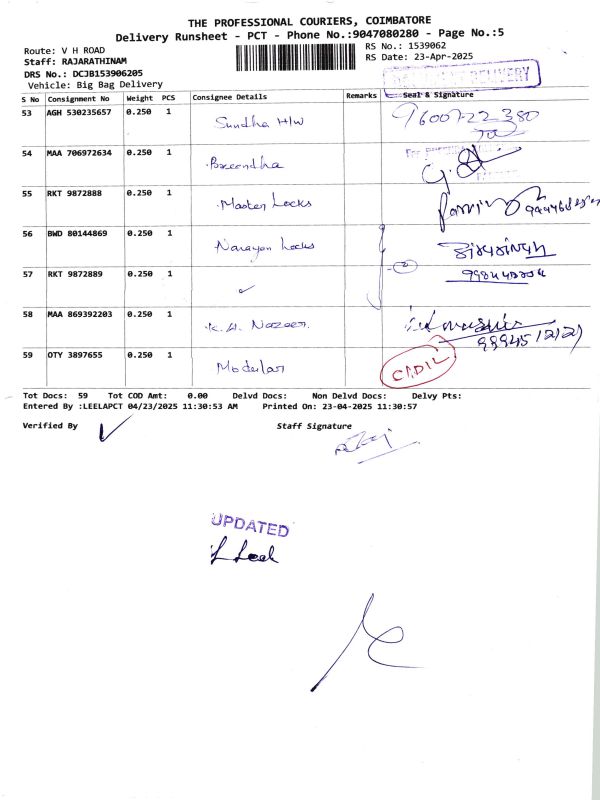 THE PROFESSIONAL COURIERS, COIMBATORE
Delivery Runsheet - PCT - Phone No.:9047080280 - Page No.:5
Route: V H ROAD
RS No.: 1539062
Staff: RAJARATHINAM
RS Date: 23-Apr-2025
DRS No.: DCJB153906205
Vehicle: Big Bag Delivery
DELIVERY
S No Consignment No Weight PCS Consignee Details Remarks Seal & Signature
53 AGH 530235657 0.250 1 Sundha H/W 96007-22380
54 MAA 706972634 0.250 1
55 RKT 9872888 0.250 1 Master Locks
56 BWD 80144869 0.250 1 Narayan Locks
57 RKT 9872889 0.250 1 ✓
58 MAA 869392203 0.250 1 K.H. Nazeer.
59 OTY 3897655 0.250 1 Modular
Tot Docs: 59 Tot COD Amt: 0.00 Delvd Docs: Non Delvd Docs: Delvy Pts:
Entered By :LEELAPCT 04/23/2025 11:30:53 AM Printed On: 23-04-2025 11:30:57
Verified By Staff Signature
UPDATED